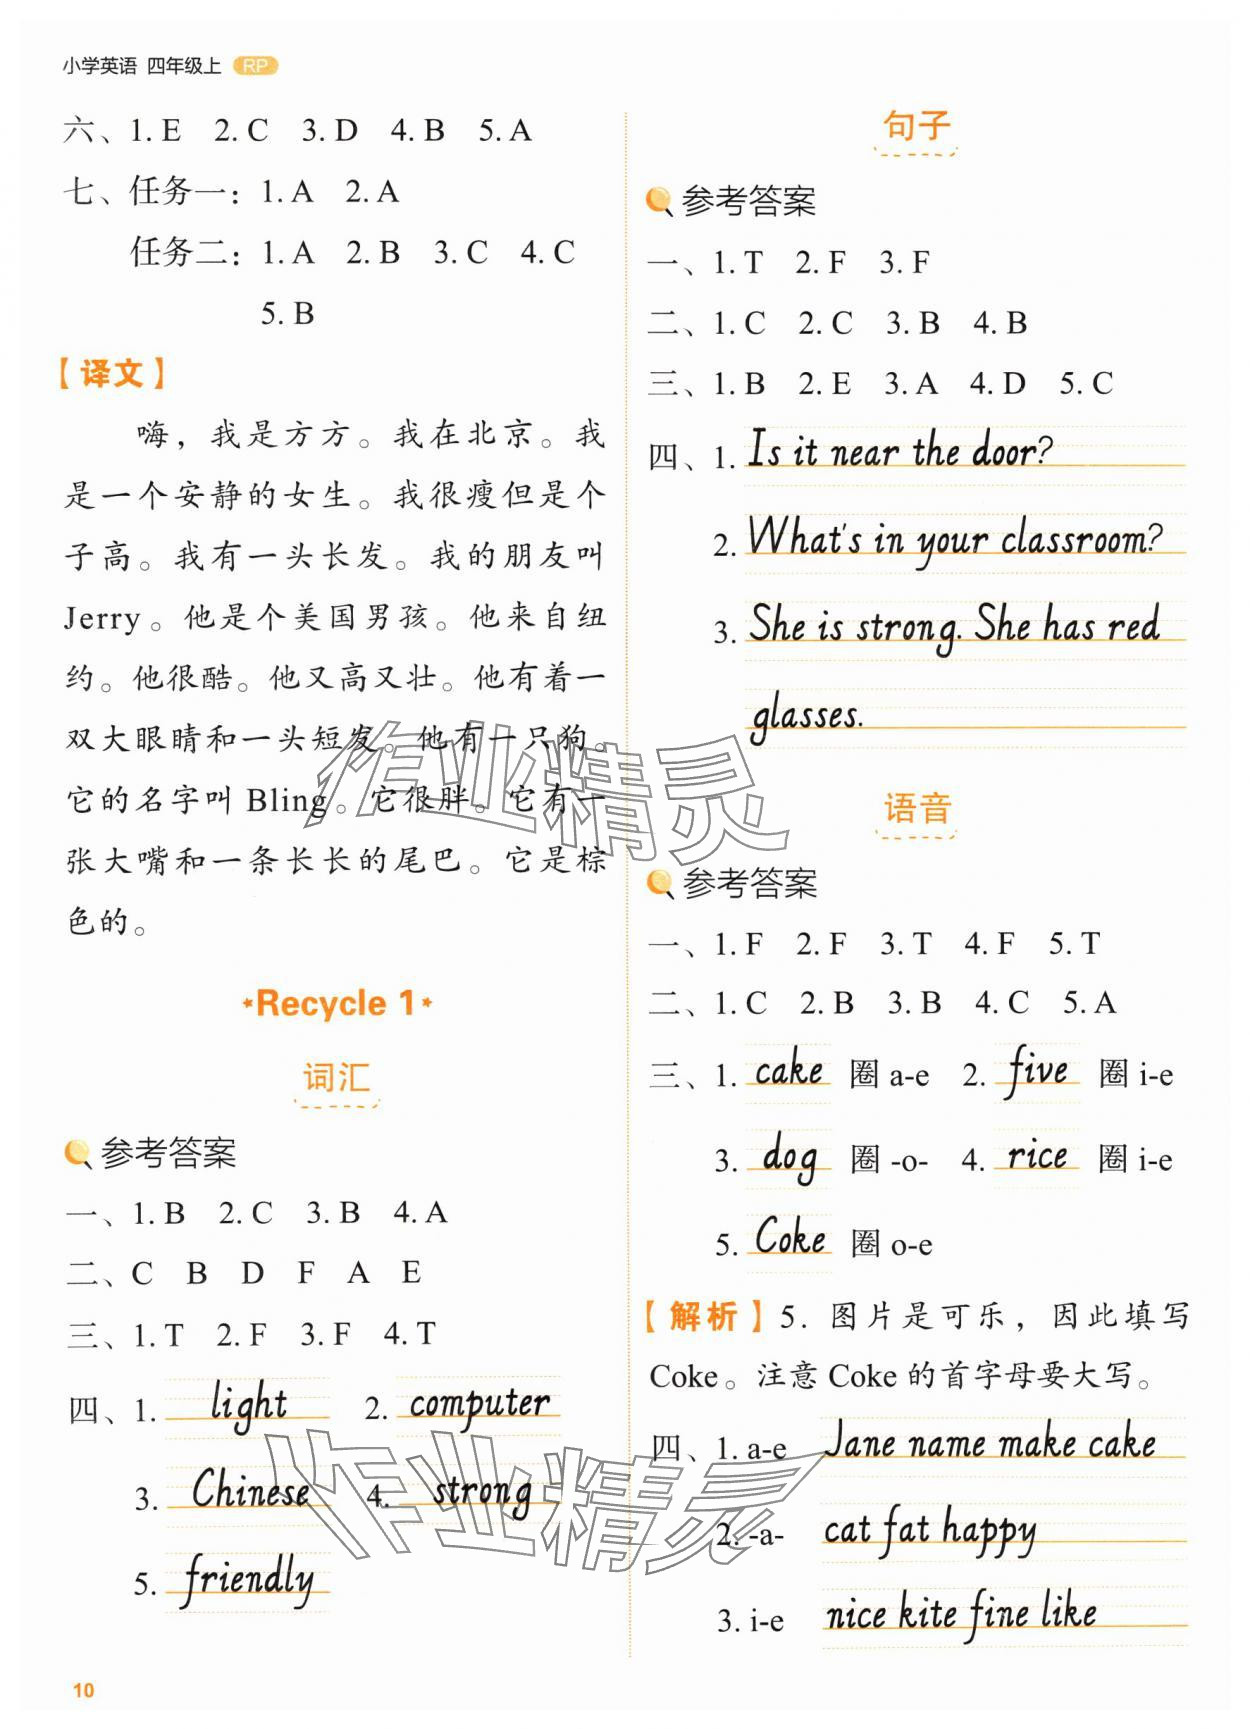 小学英语 四年级上 RP
六、1. E 2. C 3. D 4. B 5. A
七、任务一：1. A 2. A
任务二：1. A 2. B 3. C 4. C
5. B
【译文】
嗨，我是方方。我在北京。我
是一个安静的女生。我很瘦但是个
子高。我有一头长发。我的朋友叫
Jerry。他是个美国男孩。他来自纽
约。他很酷。他又高又壮。他有着一
双大眼睛和一头短发。他有一只狗。
它的名字叫 Bling。它很胖。它有一
张大嘴和一条长长的尾巴。它是棕
色的。
Recycle 1
词汇
参考答案
一、1. B 2. C 3. B 4. A
二、C B D F A E
三、1. T 2. F 3. F 4. T
四、1. light 2. computer
3. Chinese 4. strong
5. friendly
10
句子
参考答案
一、1. T 2. F 3. F
二、1. C 2. C 3. B 4. B
三、1. B 2. E 3. A 4. D 5. C
四、1. Is it near the door?
2. What's in your classroom?
3. She is strong. She has red
glasses.
语音
参考答案
一、1. F 2. F 3. T 4. F 5. T
二、1. C 2. B 3. B 4. C 5. A
三、1. cake 圈 a-e 2. five 圈 i-e
3. dog 圈 -o- 4. rice 圈 i-e
5. Coke 圈 o-e
【解析】5. 图片是可乐，因此填写
Coke。注意 Coke 的首字母要大写。
四、1. a-e Jane name make cake
2. -a- cat fat happy
3. i-e nice kite fine like
作业精灵
作业精灵